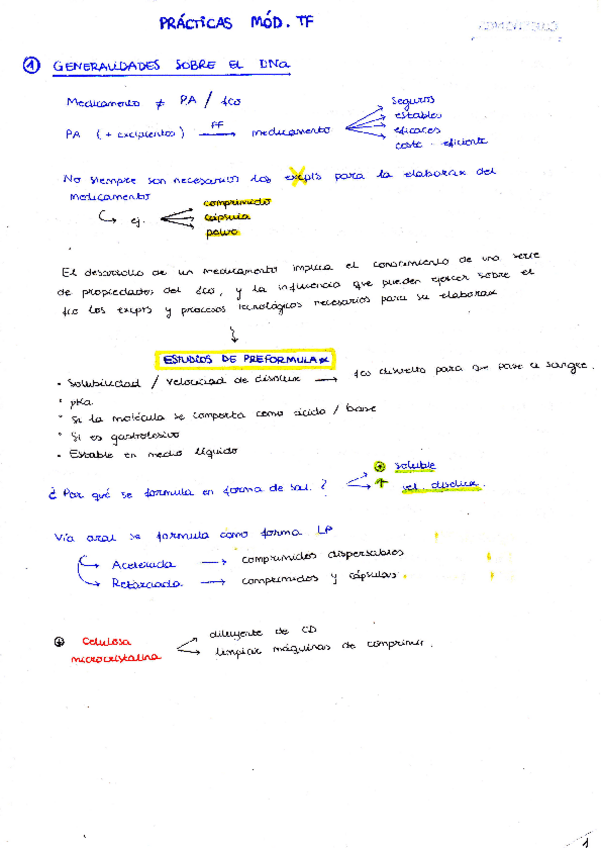 PRÁCTICAS MÓD. TF
① GENERALIDADES SOBRE EL DNa
Medicamento ≠ PA / fco
PA (+ excipientes) FF → medicamento
seguros
estables
eficaces
coste - eficiente
No siempre son necesarios los excpts para la elaborax del
medicamento
↳ ej.
comprimido
cápsula
polvo
El desarrollo de un medicamento implica el conocimiento de una serie
de propiedades del fco, y la influencia que pueden ejercer sobre el
fco los excpts y procesos tecnológicos necesarios para su elaborax
ESTUDIOS DE PREFORMULAx
• Solubilidad / velocidad de disolux → fco disuelto para q se pase a sangre.
• pKa
• Si la molécula se comporta como ácido / base
• Si es gastrolesivo
• Estable en medio líquido
¿Por qué se formula en forma de sal.?
⊕ soluble
↑ vel. disolux.
Vía oral se formula como forma LP
Acelerada → comprimidos dispersables
Retardada → comprimidos y cápsulas.
Celulosa
microcristalina
diluyente de CD
limpiar máquinas de comprimir.
1